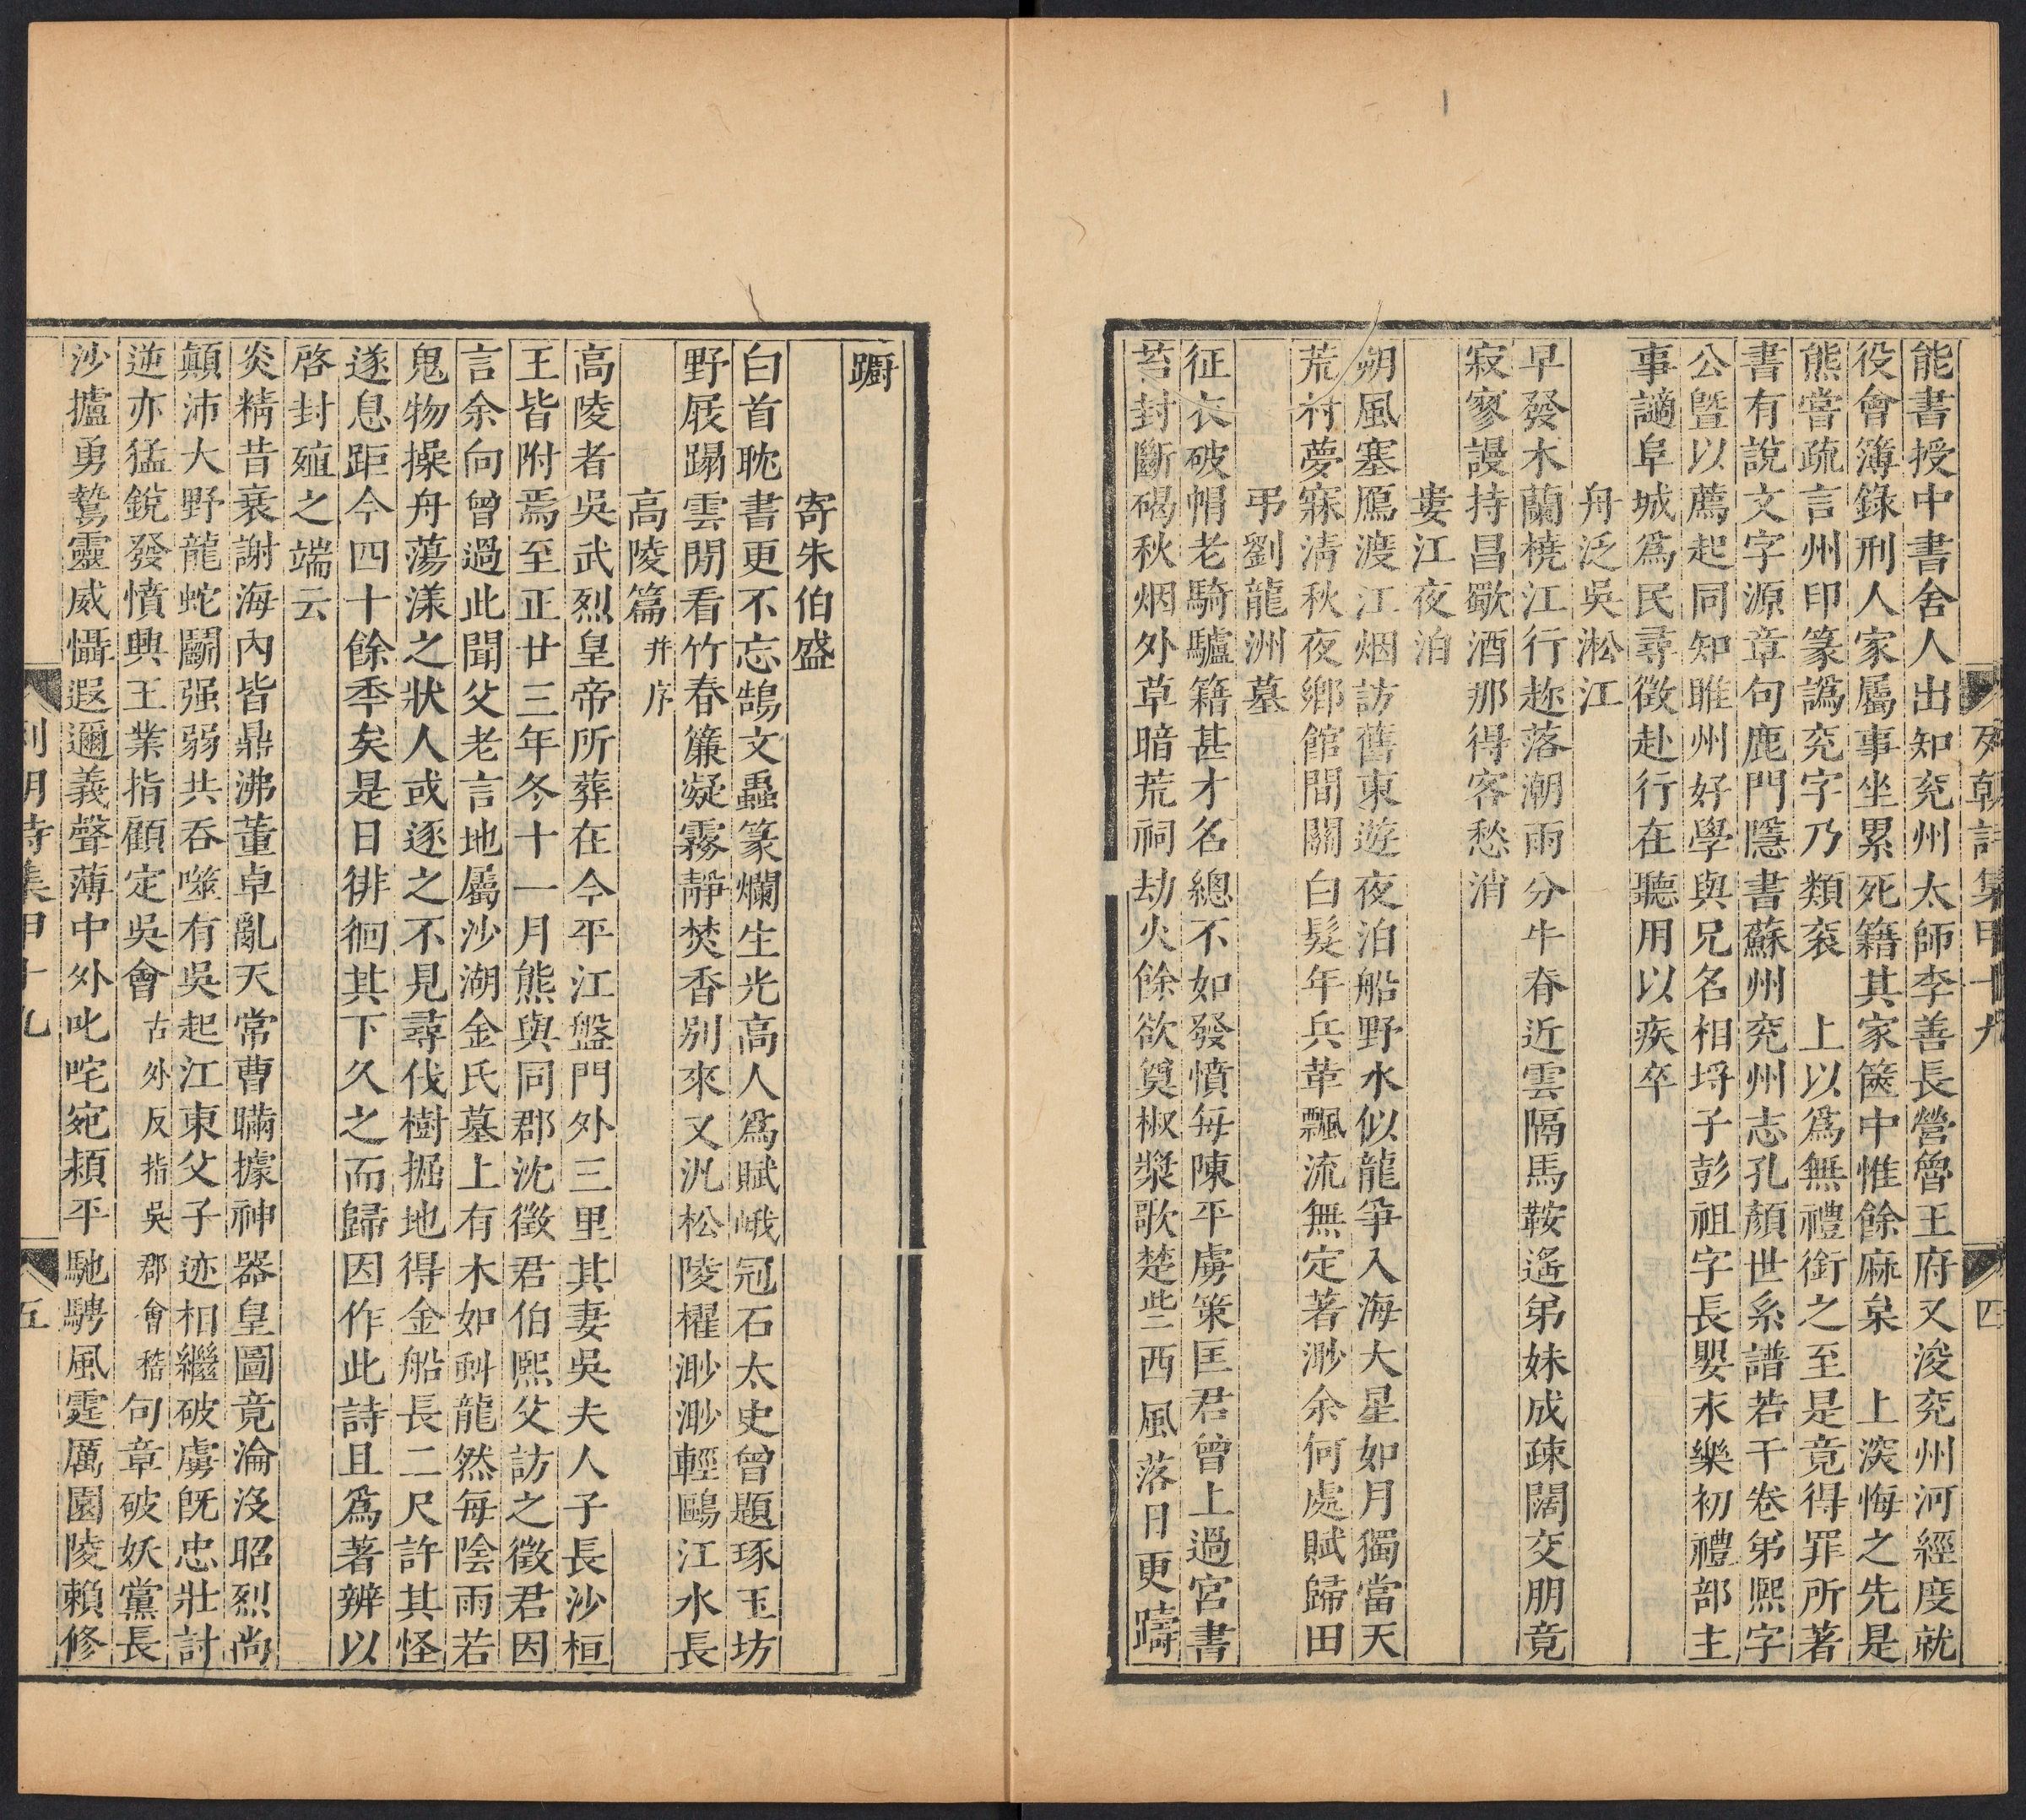 列朝詩集甲十九
四
能書授中書舍人出知兖州太師李善長營魯王府又浚兖州河經度就
役會簿錄刑人家屬事坐累死籍其家篋中惟餘麻枲　上深悔之先是
熊嘗疏言州印篆譌兖字乃類衮　上以爲無禮銜之至是竟得罪所著
書有說文字源章句鹿門隱書蘇州兖州志孔顏世系譜若干卷弟熙字
公曁以薦起同知睢州好學與兄名相埒子彭祖字長嬰永樂初禮部主
事謫阜城爲民尋徵赴行在聽用以疾卒
舟泛吳淞江
早發木蘭橈江行趂落潮雨分牛舂近雲隔馬鞍遙弟妹成疎闊交朋竟
寂寥謾持昌歜酒那得客愁消
婁江夜泊
朔風塞鴈渡江烟訪舊東遊夜泊船野水似龍爭入海大星如月獨當天
荒村夢寐淸秋夜鄉館間關白髮年兵革飄流無定著渺余何處賦歸田
弔劉龍洲墓
征衣破帽老騎驢籍甚才名總不如發憤每陳平虜策匡君曾上過宮書
苔封斷碣秋烟外草暗荒祠劫火餘欲奠椒漿歌楚些西風落日更躊
躕
寄朱伯盛
白首耽書更不忘鵠文蟲篆爛生光高人爲賦峨冠石太史曾題琢玉坊
野屐蹋雲閒看竹春簾凝霧靜焚香別來又汎松陵櫂渺渺輕鷗江水長
高陵篇幷序
高陵者吳武烈皇帝所葬在今平江盤門外三里其妻吳夫人子長沙桓
王皆附焉至正廿三年冬十一月熊與同郡沈徵君伯熙父訪之徵君因
言余向曾過此聞父老言地屬沙湖金氏墓上有木如虯龍然每陰雨若
鬼物操舟蕩漾之狀人或逐之不見尋伐樹掘地得金船長二尺許其怪
遂息距今四十餘秊矣是日徘徊其下久之而歸因作此詩且爲著辨以
啓封殖之端云
炎精昔衰謝海內皆鼎沸董卓亂天常曹瞞據神器皇圖竟淪沒昭烈尚
顛沛大野龍蛇鬬强弱共吞噬有吳起江東父子迹相繼破虜旣忠壯討
逆亦猛銳發憤興王業指顧定吳會古外反指吳郡會稽句章破妖黨長
沙攄勇鷙靈威懾遐邇義聲薄中外叱咤宛潁平馳騁風霆厲園陵賴修
列朝詩集甲十九
五